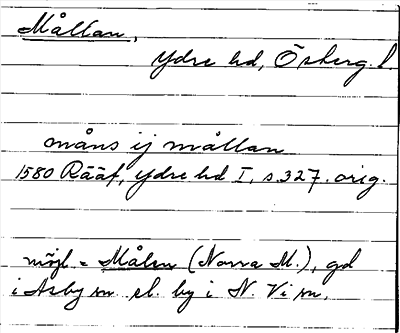 Måltan,
Ydre hd, Österg. l.
måns ij måltan
1580 Rääf, Ydre hd I, s. 327. orig.
möjl = Målen (Norra M.), gd
i Asby sn el. by i N. Vi sn.